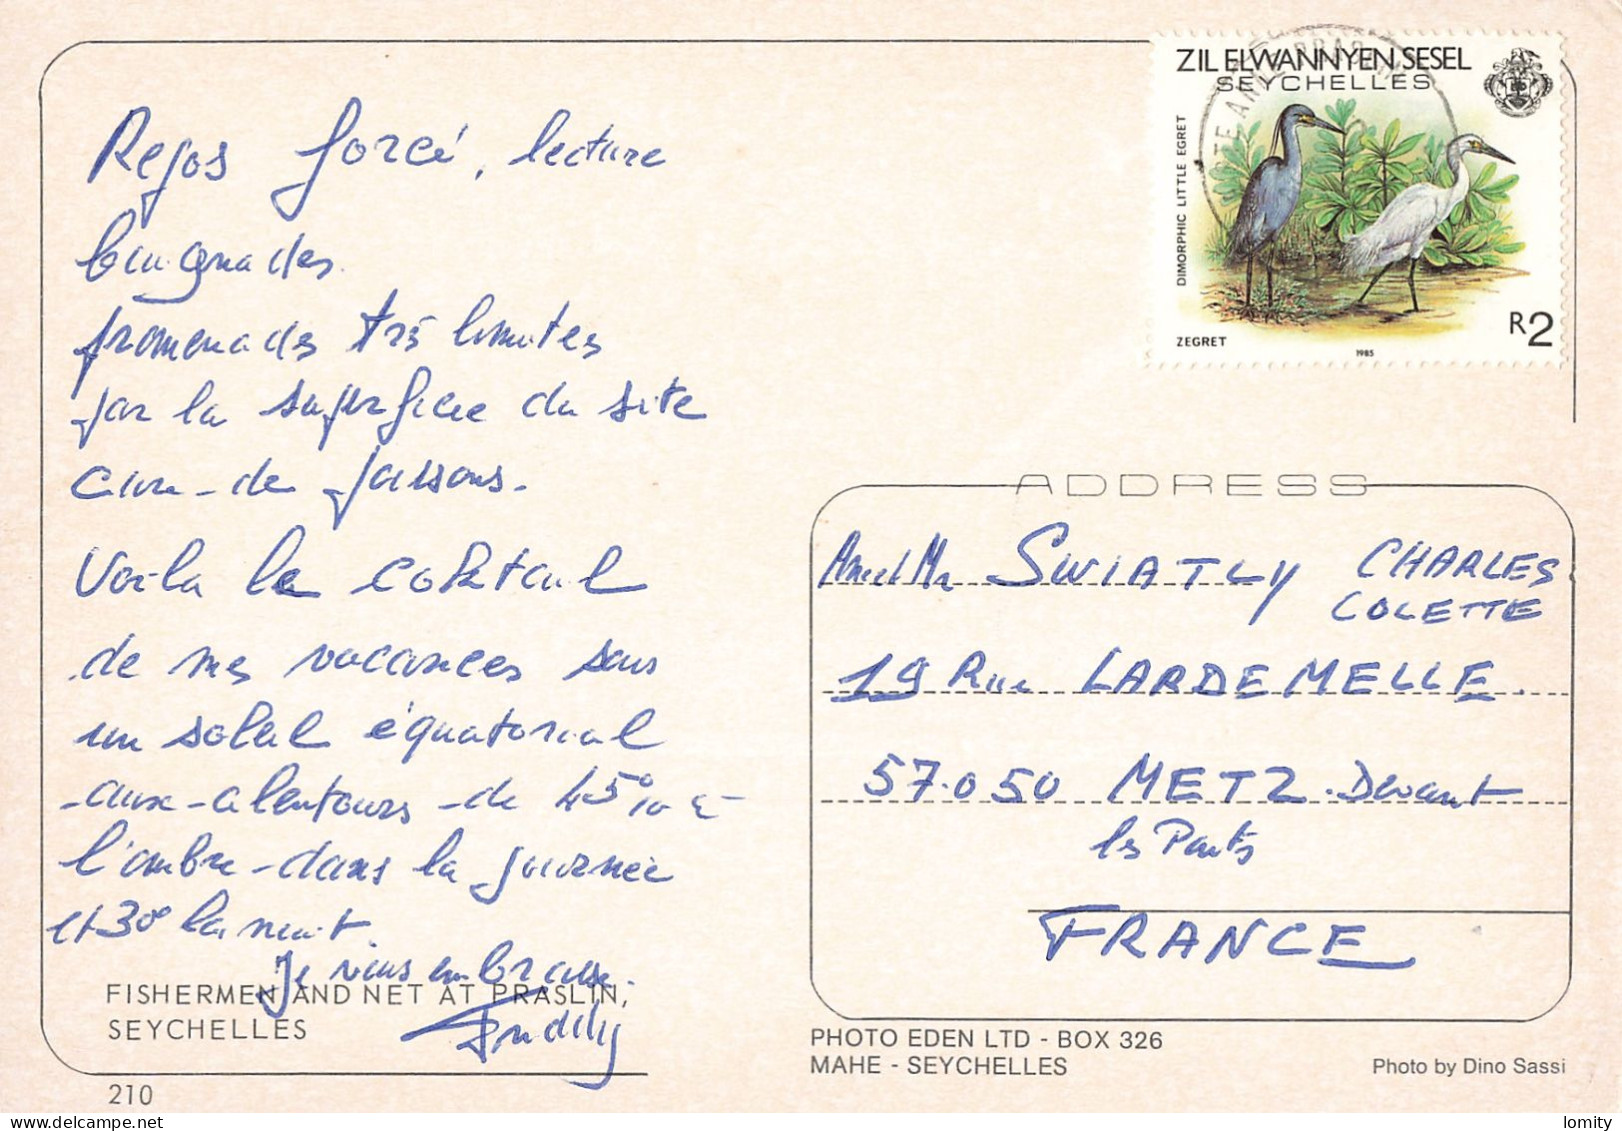 Repos forcé, lecture
baignades
promenades très limitées
par la superficie du site
Voila le cocktail
de mes vacances sous
un soleil équatorial
aux alentours de 45° à
l'ombre dans la journée
et 30° la nuit.
Je vous embrasse.
FISHERMEN AND NET AT PRASLIN,
SEYCHELLES
210
ZIL ELWANNYEN SESEL
SEYCHELLES
DIMORPHIC LITTLE EGRET
ZEGRET
1985
R2
ADDRESS
SWIATLY CHARLES
COLETTE
19 Rue LARDEMELLE.
57.050 METZ. Devant
les Ponts
FRANCE
PHOTO EDEN LTD - BOX 326
MAHE - SEYCHELLES
Photo by Dino Sassi
lomity